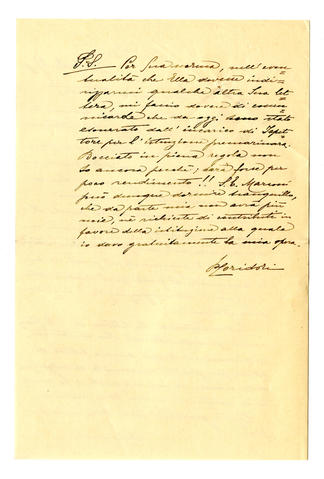 P.S. Per Sua norma, nell'even=
tualità che Ella dovesse indi=
rizzarmi qualche altra Sua let=
tera, mi faccio dovere di comu=
nicarle che da oggi sono stato
esonerato dall'incarico di Ispet=
tore per l'Istruzione premarinara.
Bocciato in piena regola non
so ancora perchè; sarà forse per
poco rendimento!! S.E. Marconi
può dunque dormire tranquillo,
che da parte mia non avrà più
noie, nè richieste di contributi in
favore della istituzione alla quale
io davo gratuitamente la mia opera.